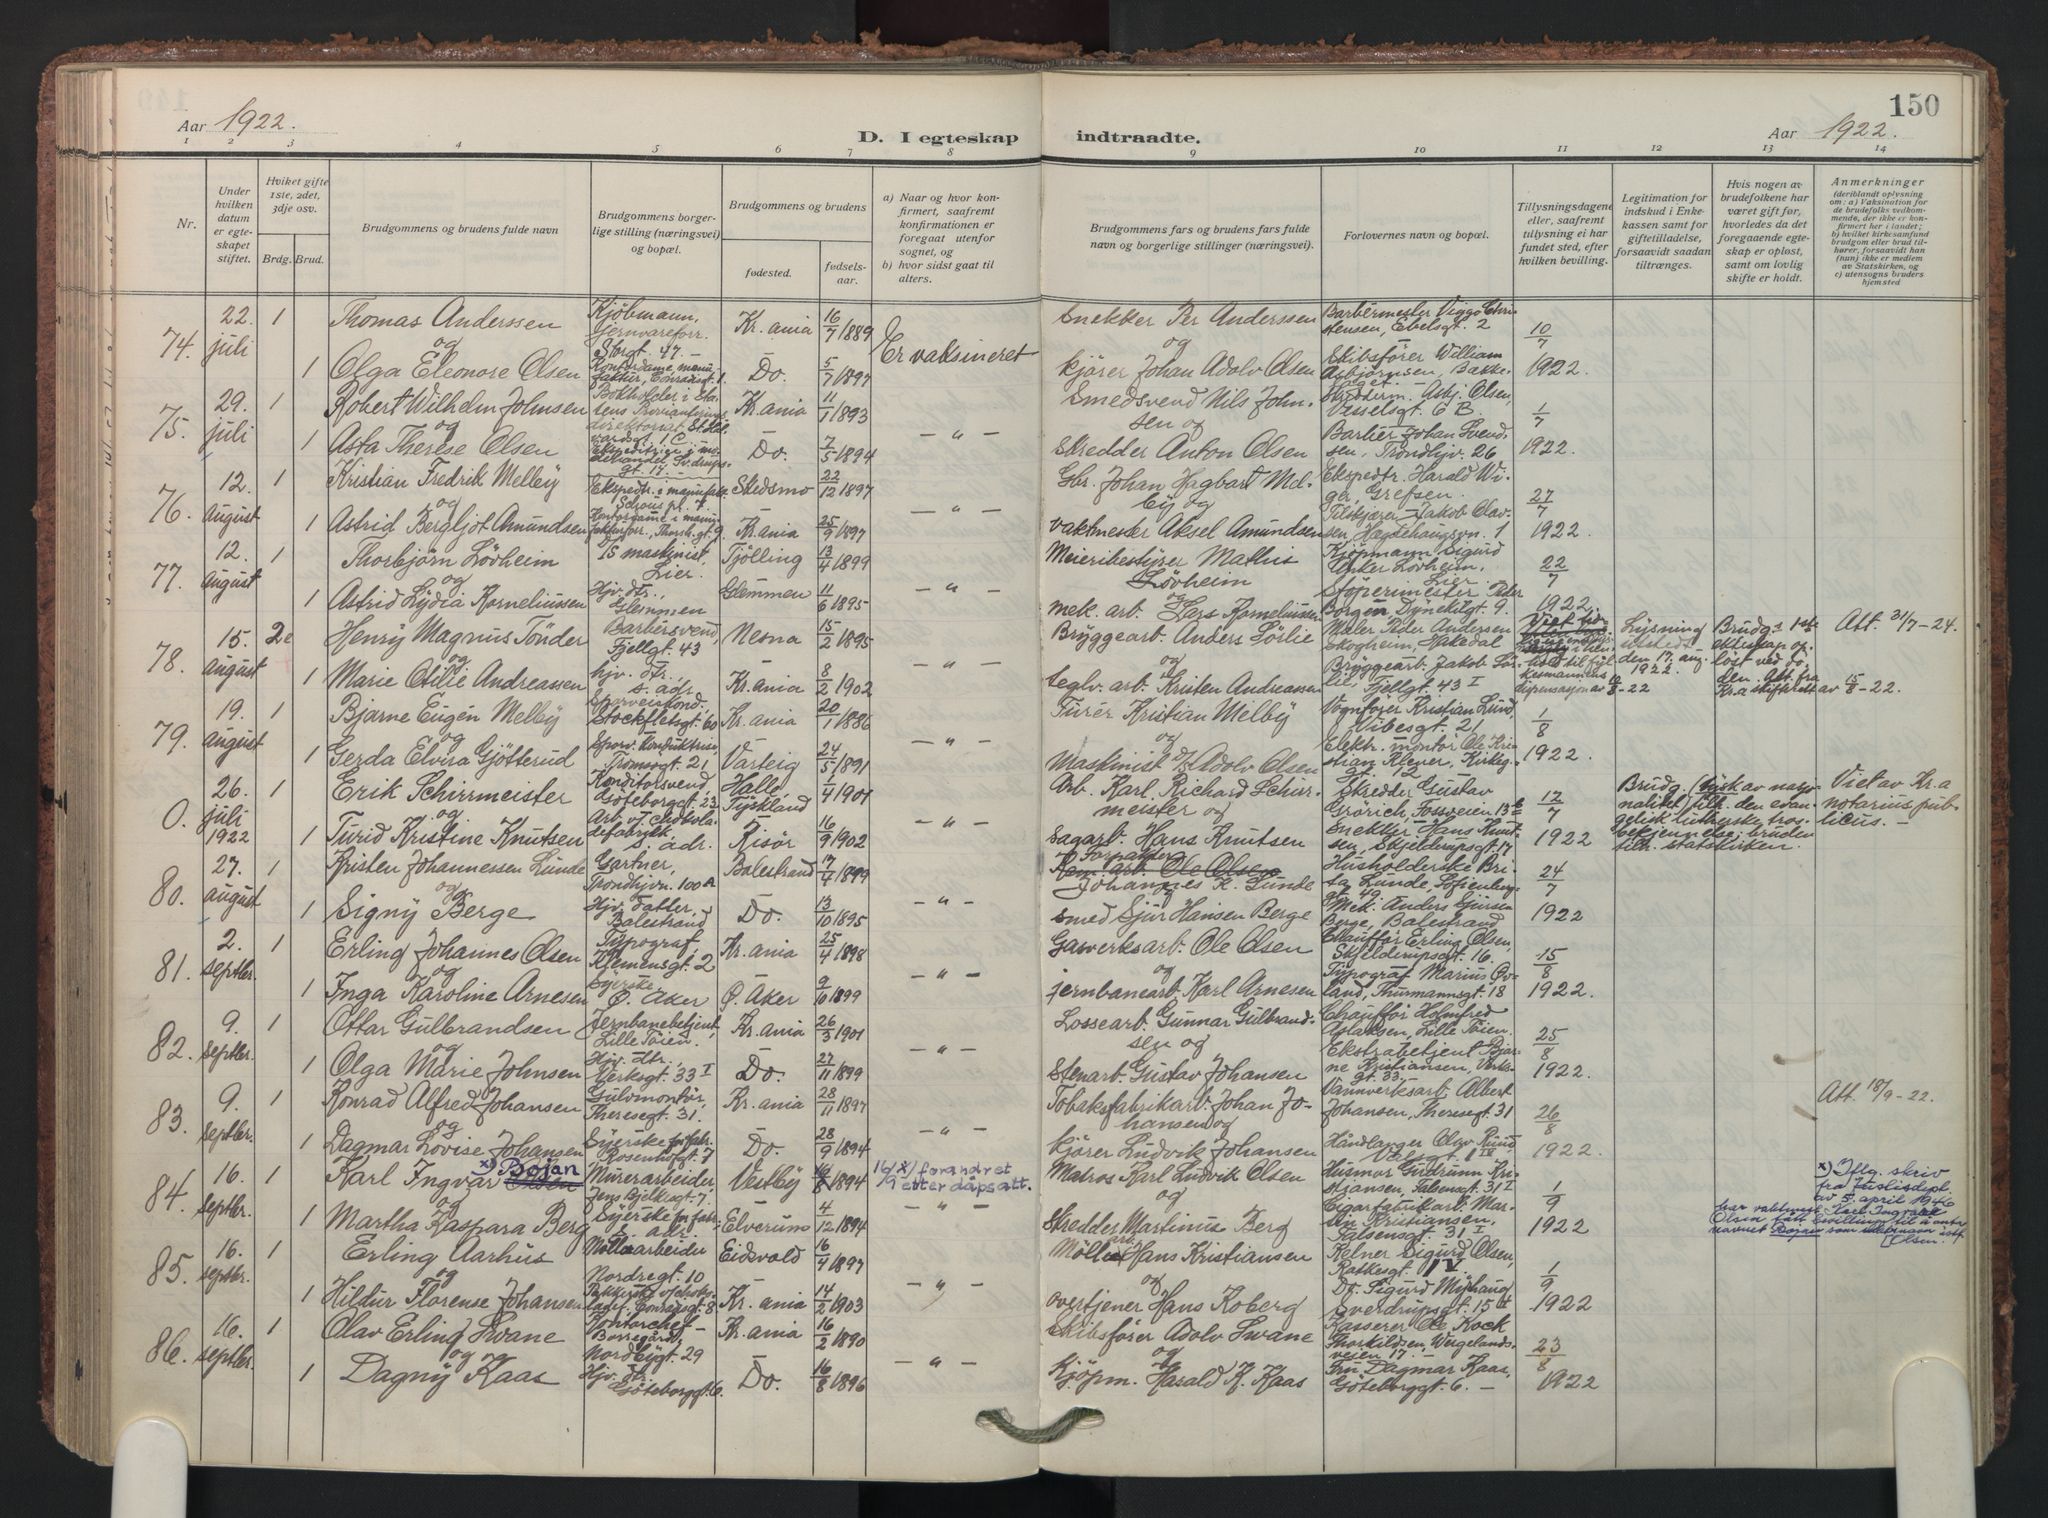 150
Aar 1922.
D. I egteskap indtraadte.
Aar 1922.
1 2 3 4 5 6 7 8 9 10 11 12 13 14
Nr.
Under hvilken datum er egteskapet stiftet.
Hviket gifte 1ste, 2det, 3dje osv.
Brdg. Brud.
Brudgommens og brudens fulde navn
Brudgommens borgerlige stilling (næringsvei) og bopæl.
Brudgommens og brudens
fødested.
fødselsaar.
a) Naar og hvor konfirmert, saafremt konfirmationen er foregaat utenfor sognet, og
b) hvor sidst gaat til alters.
Brudgommens fars og brudens fars fulde navn og borgerlige stillinger (næringsvei).
Forlovernes navn og bopæl.
Tillysningsdagene eller, saafremt tillysning ei har fundet sted, efter hvilken bevilling.
Legitimation for indskud i Enkekassen samt for giftetilladelse, forsaavidt saadan tiltrænges.
Hvis nogen av brudefolkene har været gift før, hvorledes da det foregaaende egteskap er opløst, samt om lovlig skifte er holdt.
Anmerkninger
(deriblandt oplysning om: a) Vaksination for de brudefolks vedkommende, der ikke er konfirmert her i landet; b) hvilket kirkesamfund brudgom eller brud tilhører, forsaavidt han (hun) ikke er medlem av Statskirken, og c) utensogns bruders hjemsted
74. 22. juli 1 Thomas Anderssen Kjöbmann, Jernvareforr. Storgt. 47. Kr.ania 16/7 1889 Er vaksineret Snekker Per Anderssen Barbermester Viggo Christensen, Ebelsgt. 2 10/7 1922.
og
1 Olga Eleonore Olsen Do. 5/7 1897 kjörer Johan Adolv Olsen Skibsfører William Asbjörnsen, Bakkehaget.
75. 29. juli 1 Robert Wilhelm Johnsen Kr.ania 11/1 1893 — " — Smedsvend Nils Johnsen og Skredderm. Asbj. Olsen, Vesselsgt. 6 B. 1/7 1922.
og
1 Asta Therese Olsen Do. 7/5 1894 Skredder Anton Olsen Barber Johan Svendsen, Trondhjv. 26
76. 12. august 1 Kristian Fredrik Melby Skedsmo 22/12 1897 — " — Gbr. Johan Hagbart Melby og Ekspedtr. Harald Wiger, Grefsen. 27/7 1922
og
1 Astrid Bergljot Amundsen Kr.ania 25/9 1897 vaktmester Aksel Amundsen Jakob Olavsen, Hegdehaugsvn. 1
77. 12. august 1 Thorbjörn Lövheim maskinist, Lier. Tjölling 13/4 1899 — " — Meieribestyrer Mathis Lövheim Kjöpmann Sigurd Lövheim, Lier. 22/7 1922.
og
1 Astrid Lydia Korneliussen Hjv. dtr., Glemmen Glemmen 11/6 1895 mek. arb. Lars Korneliussen Peder Borgen Dynekilgt. 9.
78. 15. august 2e Henry Magnus Tönder Barbersvend, Fjellgt. 43 Nesna 15/2 1895 Bryggearb. Anders Sörlie Maler Peder Andersen Skogheim, Hakedal Lysning utstedt den 17. aug. 1922. Brudg. 1ste ekteskap opløst ved döden. Att. fra Kr.a skifterett av 15/8-22. Att. 31/7-24.
og
1 Marie Otilie Andreassen hjv. dtr., s. adr. Kr.ania 8/2 1902 teglv. arb. Kristen Andreassen Bryggearb. Jakob Sörlie, Fjellgt. 43 I
79. 19. august 1 Bjarne Eugén Melby Sporveiskond., Stockfletsgt. 60 Kr.ania 20/1 1886 — " — Turer Kristian Melby Vognfører Kristian Lund, Vibesgt. 21 1/8 1922.
og
1 Gerda Elvira Gjötterud Sporv. konduktrise Tromsøgt. 21 Varteig 24/5 1891 Maskinist Adolv Olsen Elektr. montör Ole Kristian Klever, Kirkegt. 12
0. 26. juli 1922 1 Erik Schirrmeister Konditorsvend, Göteborggt. 23 Halle, Tyskland 1/4 1901 — " — Arb. Karl Richard Schirrmeister og Skredder Gustav Grörich, Fossveien 13 b 12/7 1922 Brudg. (tysk av nasjonalitet) tilh. den evangelisk lutherske trosbekjennelse; bruden tilh. statskirken. Viet av Kr.a notarius publicus. —
og
1 Turid Kristine Knutsen Arb. v/ chokoladefabrikk, s. adr. Risör 16/9 1902 Sagarb. Hans Knutsen Snekker Hans Knutsen, Skjelderupsgt. 17
80. 27. august 1 Kristen Johannessen Lunde Gartner, Trondhjvn. 100 A Balestrand 17/4 1899 — " — Forpakter Johannes K. Lunde Husholderske Brita Lunde, Sofienberggt. 49 24/7 1922
og
1 Signy Berge Hjv. datter, Balestrand Do. 13/10 1895 smed Sjur Hansen Berge Mek. Anders Sjursen Berge, Balestrand
81. 2. septbr. 1 Erling Johannes Olsen Typograf, Klemensgt. 2 Kr.ania 25/4 1898 — " — Gasverksarb. Ole Olsen Chauffør Erling Olsen, Skjelderupsgt. 16. 15/8 1922.
og
1 Inga Karoline Arnesen Syerske, Ö. Aker Ö. Aker 9/10 1899 jernbanearb. Karl Arnesen Typograf Marius Övland, Thurmannsgt. 18
82. 9. septbr. 1 Ottar Gulbrandsen Jernbanebetjent, Lille Töien. Kr.ania 26/3 1901 — " — Lossearb. Gunnar Gulbrandsen og Chauffør Holmfred Aslaksen, Lille Töien. 25/8 1922.
og
1 Olga Marie Johnsen Hjv. dtr., Verksgt. 33 I Do. 27/11 1899 Stenarb. Gustav Johansen Ekstrabetjent Bjarne Kristiansen, Verksgt. 33,
83. 9. septbr. 1 Konrad Alfred Johansen Gulvmontör, Theresegt. 31. Kr.ania 28/11 1897 — " — Tobaksfabrikarb. Johan Johansen og Vannverksarb. Albert Johansen, Theresegt. 31 26/8 1922. Att. 18/9-22.
og
1 Dagmar Lovise Johansen Syerske for fabr. Rosenhofgt. 7 Do. 28/9 1894 kjörer Ludvik Johansen Håndlanger Olav Ruud
84. 16. septbr. 1 Karl Ingvar x) Bojan Olsen Murerarbeider Jens Bjelkesgt. 7. Vestby 1894 16/9 x) forandret efter dåpsatt. Matros Karl Ludvik Olsen Husmor Gudrunn Kristjansen, Falsensgt. 31 I 1/9 1922 x) Iflg. skriv fra Justisdept av 5. april 1946 har vaktmest. Karl Ingvar Olsen fått bevilling til å anta navnet Bojan som slektsnavn istf. Olsen.
og
1 Martha Kaspara Berg Syerske for fabr., s. adr. Elverum 4/12 1894 — " — Skredder Martinus Berg Cigarfabrikarb. Martin Kristiansen, Falsensgt. 31 I
85. 16. septbr. 1 Erling Aarhus Möllearbeider Nordregt. 10 Eidsvold 16/4 1897 — " — Möllearb. Hans Kristiansen Kelner Sigurd Olsen, Ratkesgt. 1 V. 1/9 1922
og
1 Hildur Florense Johansen Conradisgt. 8 Kr. ania 14/2 1903 overtjener Hans Koberg Do. Sigurd Myrhaug, Sverdrupsgt. 15 II
86. 16. septbr. 1 Olav Erling Svane Kontorchef — Borregård, Nordbygt. 29 Kr.ania 16/2 1890 — " — Skibsfører Adolv Svane Kasserer Ole Kock Thorkildsen, Wergelandsveien 17. 23/8 1922
og
1 Dagny Kaas Hjv. dtr. Göteborggt. 6. Do. 16/8 1896 Kjöpm. Harald K. Kaas Fru Dagmar Kaas, Göteborggt. 6. —